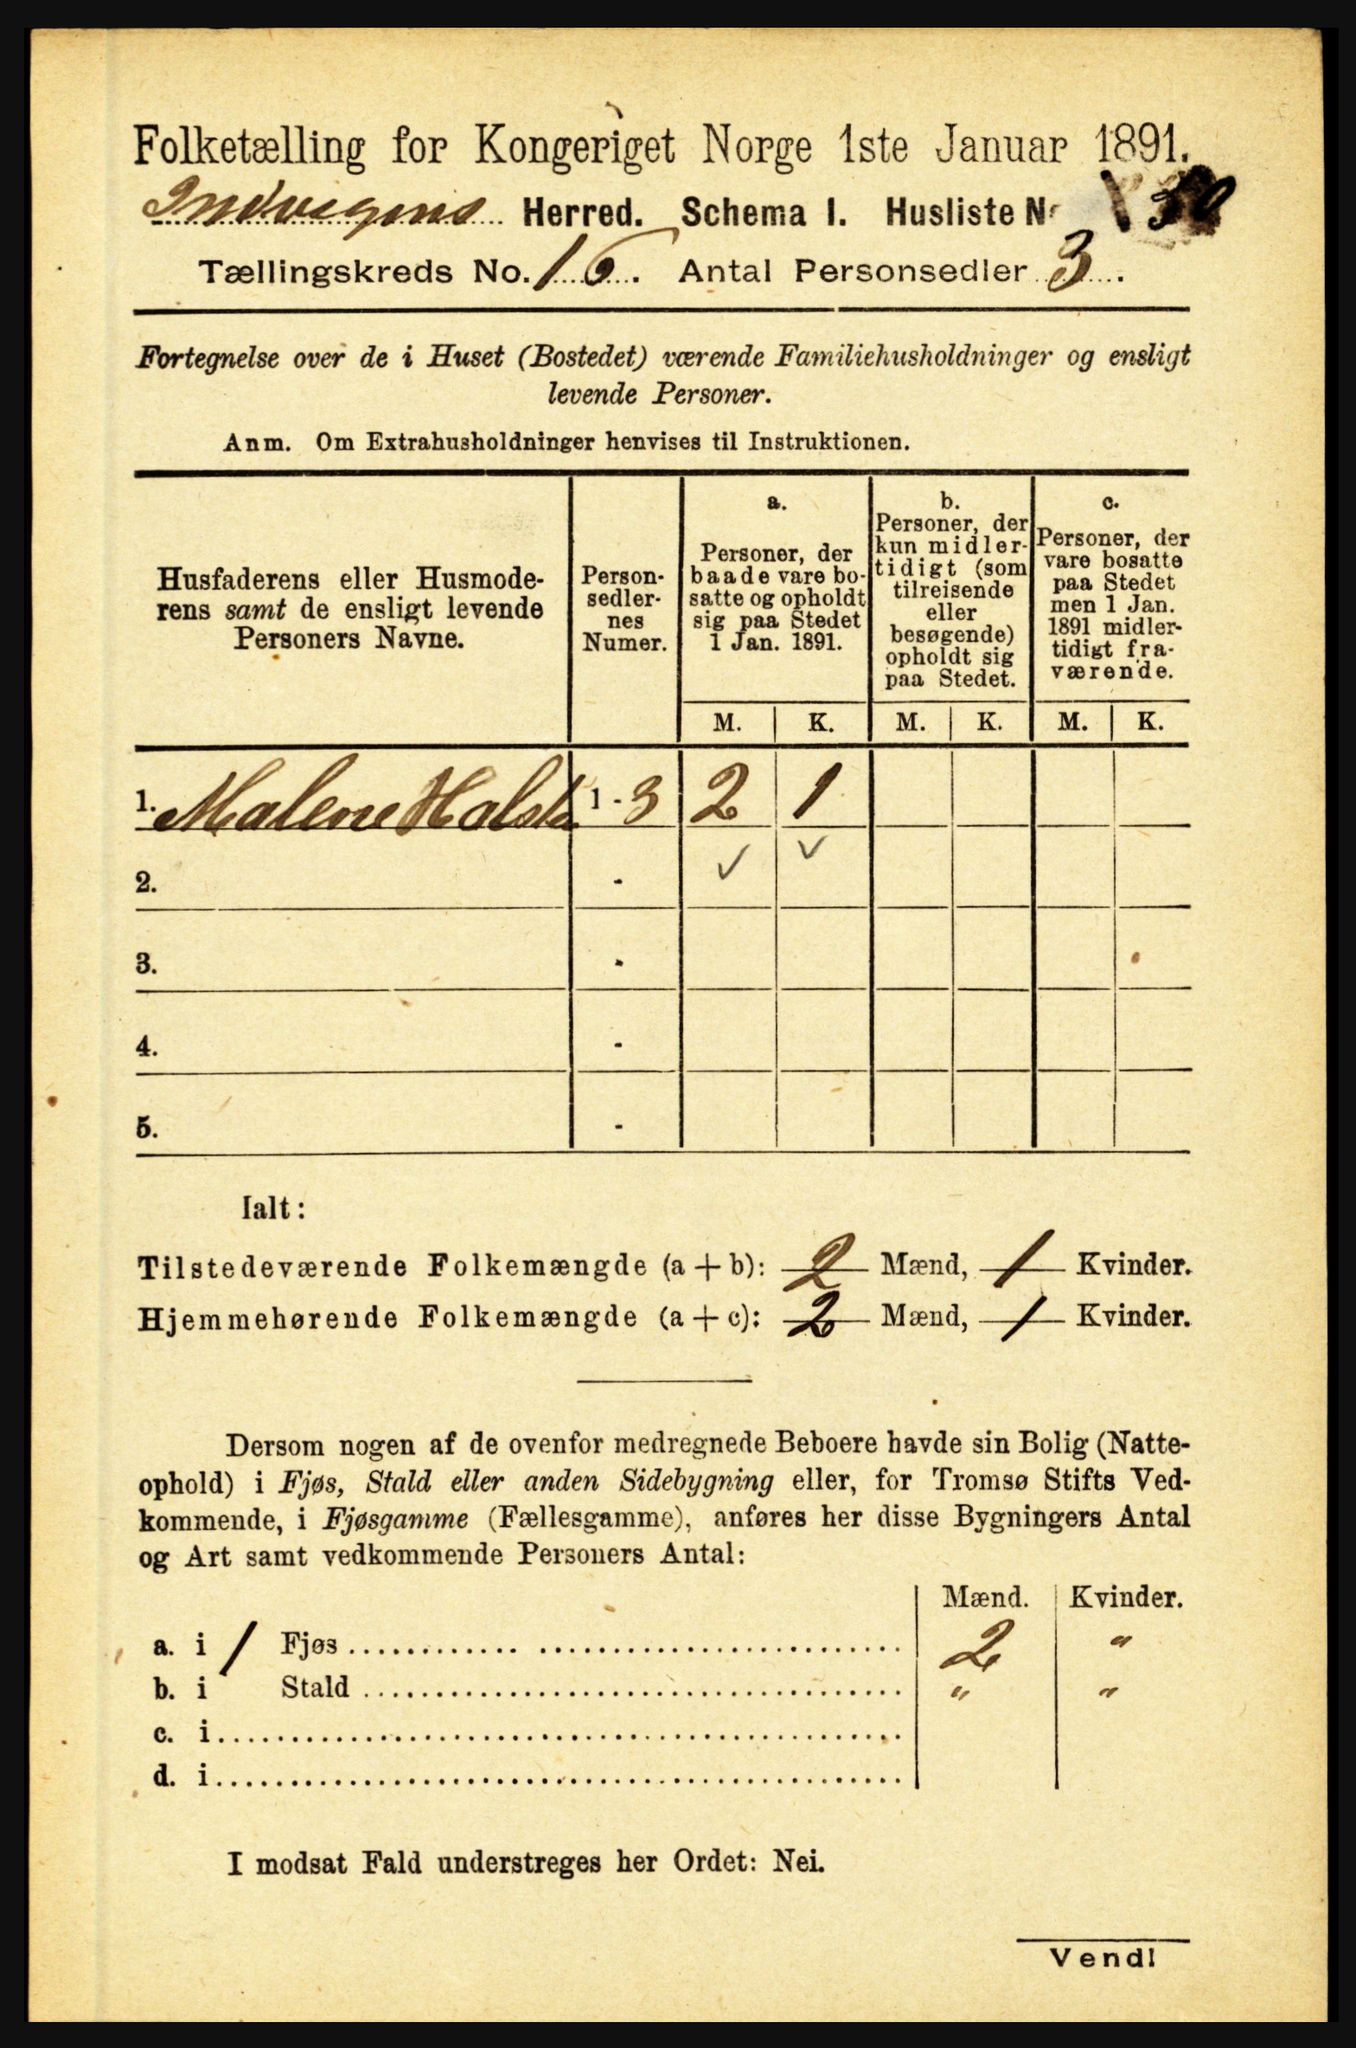 Folketælling for Kongeriget Norge 1ste Januar 1891.
Indvigens Herred. Schema I. Husliste No 30
Tællingskreds No. 16. Antal Personsedler 3.
Fortegnelse over de i Huset (Bostedet) værende Familiehusholdninger og ensligt
levende Personer.
Anm. Om Extrahusholdninger henvises til Instruktionen.
Husfaderens eller Husmode-
rens samt de ensligt levende
Personers Navne.
Person-
sedler-
nes
Numer.
a.
Personer, der
baade vare bo-
satte og opholdt
sig paa Stedet
1 Jan. 1891.
b.
Personer, der
kun midler-
tidigt (som
tilreisende
eller
besøgende)
opholdt sig
paa Stedet.
c.
Personer, der
vare bosatte
paa Stedet
men 1 Jan.
1891 midler-
tidigt fra-
værende.
M. K. M. K. M. K.
1. Malene Holst 1 - 3 2 1
2. - ✓ ✓
3. -
4. -
5. -
Ialt:
Tilstedeværende Folkemængde (a + b): 2 Mænd, 1 Kvinder.
Hjemmehørende Folkemængde (a + c): 2 Mænd, 1 Kvinder.
Dersom nogen af de ovenfor medregnede Beboere havde sin Bolig (Natte-
ophold) i Fjøs, Stald eller anden Sidebygning eller, for Tromsø Stifts Ved-
kommende, i Fjøsgamme (Fællesgamme), anføres her disse Bygningers Antal
og Art samt vedkommende Personers Antal:
Mænd. Kvinder.
a. i 1 Fjøs 2 "
b. i Stald " "
c. i
d. i
I modsat Fald understreges her Ordet: Nei.
Vend!